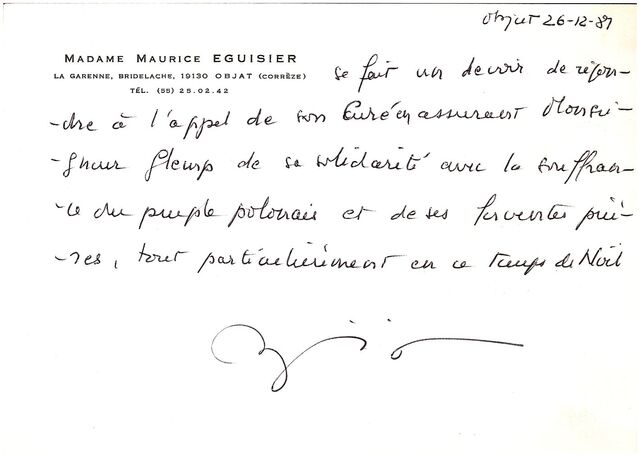 Objat 26-12-81
MADAME MAURICE EGUISIER
LA GARENNE, BRIDELACHE, 19130 OBJAT (CORRÈZE)
TÉL. (55) 25.02.42
se fait un devoir de répon-
-dre à l'appel de son Curé en assurant Monsei-
-gneur Glemp de sa solidarité avec la souffran-
-ce du peuple polonais et de ses ferventes priè-
-res, tout particulièrement en ce temps de Noël